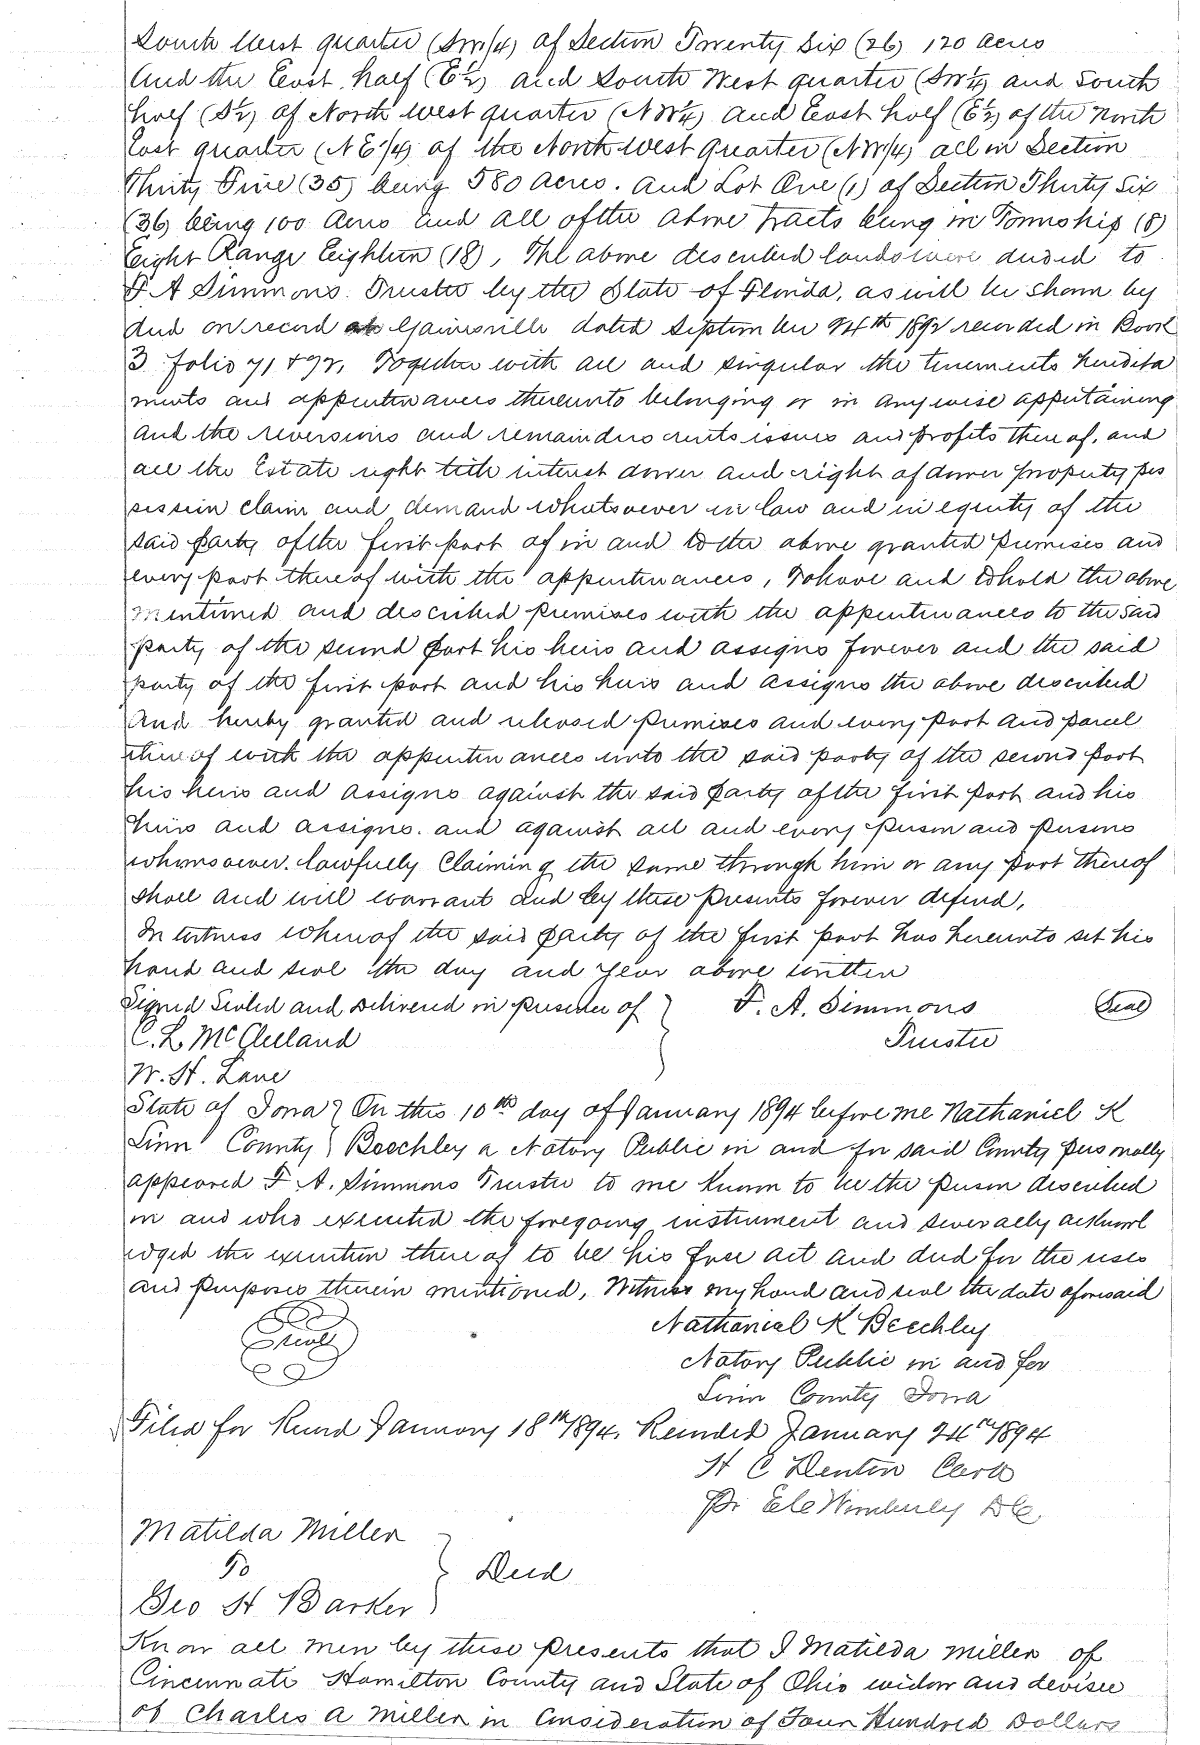 South West quarter (SW/4) of Section Twenty Six (26) 120 acres
And the East half (E½) and South West quarter (SW¼) and South
half (S½) of North West quarter (NW¼) and East half (E½) of the North
East quarter (NE/4) of the North West quarter (NW/4) all in Section
Thirty Five (35) being 580 acres. And Lot One (1) of Section Thirty Six
(36) being 100 Acres and all of the above tracts being in Township (8)
Eight Range Eighteen (18), The above described lands were deeded to
F A Simmons Trustee by the State of Florida, as will be shown by
deed on record at Gainesville dated September 24th 1892 recorded in Book
3 folio 71 & 72, Together with all and singular the tenements heredita
ments and appurtenances thereunto belonging or in anywise appertaining
and the reversions and remainders rents issues and profits thereof, and
all the Estate right title interest dower and right of dower property pos
session claim and demand whatsoever in law and in equity of the
said party of the first part of in and to the above granted premises and
every part thereof with the appurtenances, To have and to hold the above
mentioned and described premises with the appurtenances to the said
party of the second part his heirs and assigns forever and the said
party of the first part and his heirs and assigns the above described
And hereby granted and released premises and every part and parcel
thereof with the appurtenances unto the said party of the second part
his heirs and assigns against the said party of the first part and his
heirs and assigns. and against all and every person and persons
whomsoever. lawfully claiming the same through him or any part thereof
shall and will warrant and by these presents forever defend,
In witness whereof the said party of the first part has hereunto set his
hand and seal the day and year above written
Signed Sealed and Delivered in presence of } F. A. Simmons (Seal)
C. L. McClelland Trustee
W. H. Lane
State of Iowa } On this 10th day of January 1894 before me Nathaniel K
Linn County } Beechley a Notary Public in and for said County personally
appeared F. A. Simmons Trustee to me known to be the person described
in and who executed the foregoing instrument and severally acknowl
edged the execution thereof to be his free act and deed for the uses
and purposes therein mentioned, Witness my hand and seal the date aforesaid
Seal Nathanial K Beechley
Notary Public in and for
Linn County Iowa
Filed for Record January 18th 1894, Recorded January 24th 1894
H C Denton Clerk
Pr Wimberly D C,
Matilda Miller
To } Deed
Geo H Barker
Know all men by these presents that I Matilda Miller of
Cincinnati Hamilton County and State of Ohio widow and devisee
of Charles A Miller in Consideration of Four Hundred Dollars